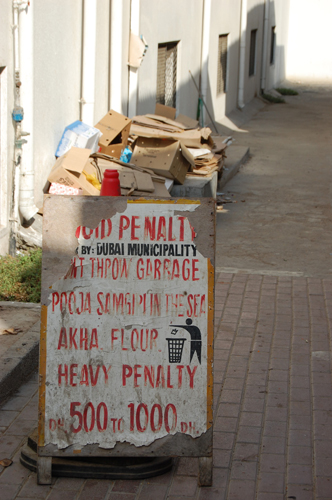 OID PENALTY
BY: DUBAI MUNICIPALITY
N'T THROW GARBAGE
POOJA SAMGIRI IN THE SEA
AKHA FLOUR
HEAVY PENALTY
DH 500 TO 1000 DH